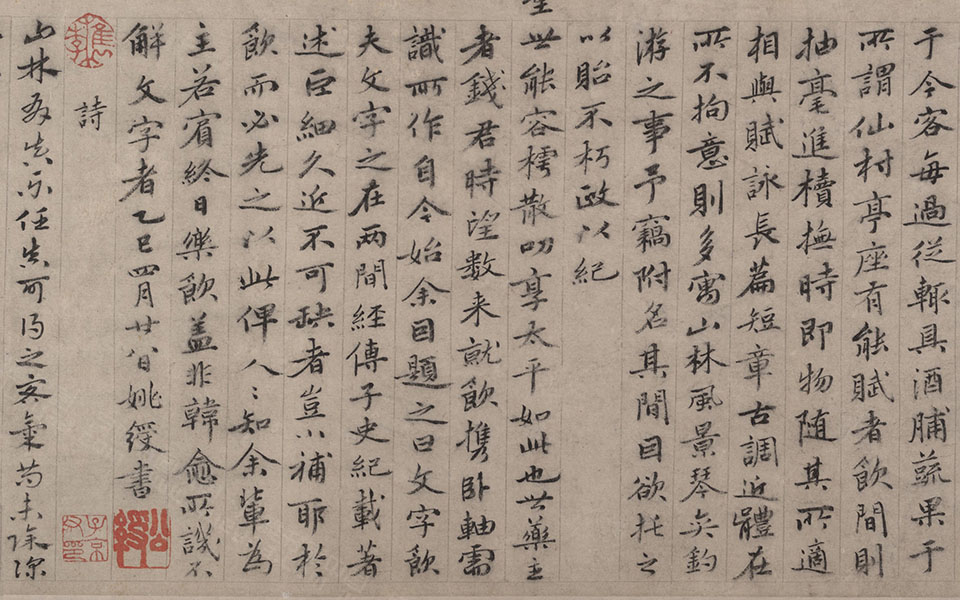 于今客每過從輒具酒脯蔬果于
所謂仙村亭座有能賦者飲間則
抽毫進櫝撫時即物随其所適
相與賦詠長篇短章古調近體在
所不拘意則多寓山林風景琴弈釣
游之事予竊附名其間因欲托之
以貽不朽敢以紀
聖
世能容樗散叨享太平如此也世藥主
者錢君時望数来就飲携卧軸需
識所作自令始余因題之曰文字飲
夫文字之在两間經傳子史紀載著
述巨細久近不可缺者豈小補耶於
飲而必先之以此俾人〻知余輩為
主若賓終日樂飲盖非韓愈所譏不
解文字者乙巳四月廿八日姚綬書
詩
山林 真 任真可 之客氣 未除深
公綬